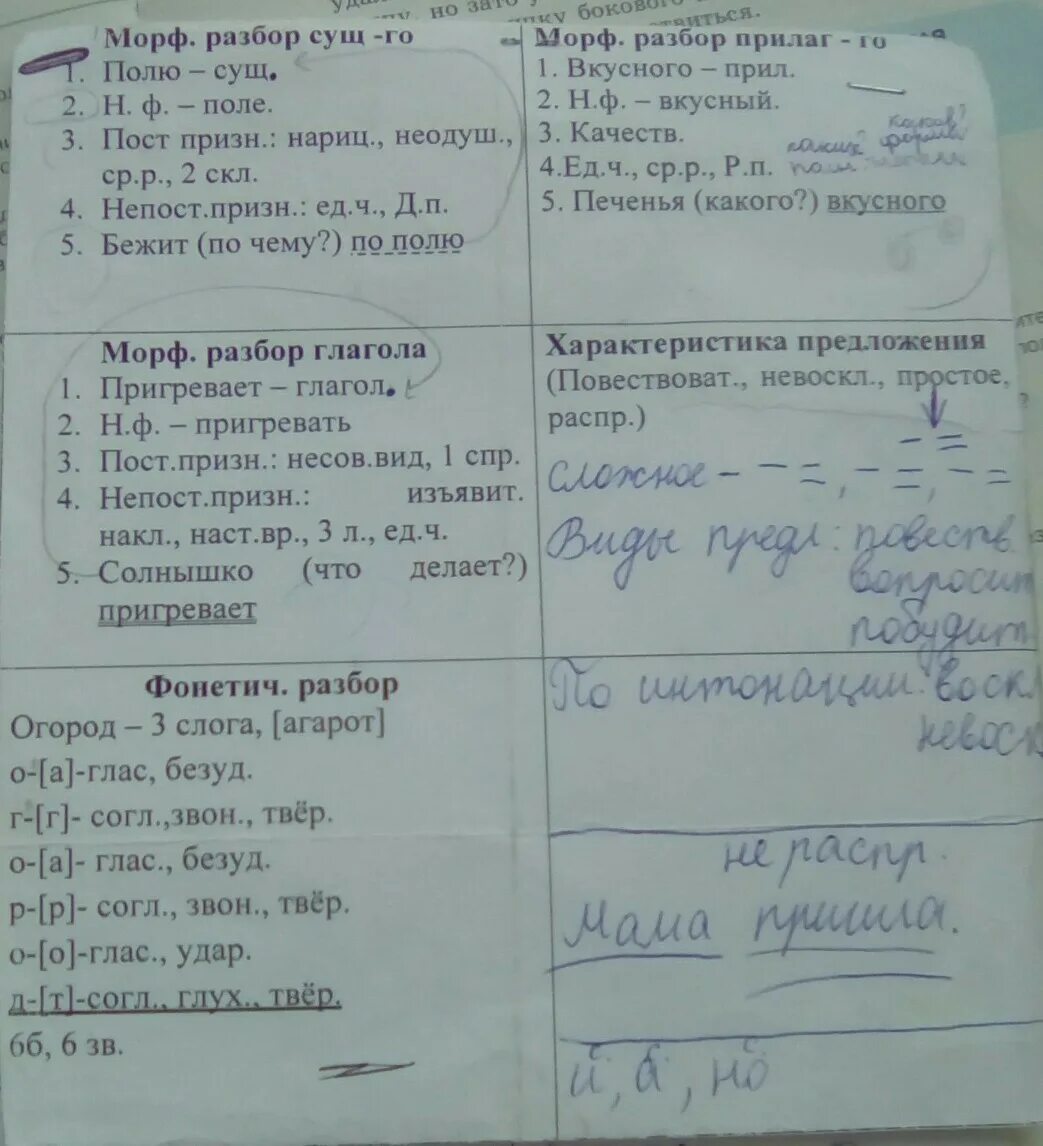 но зато
бокового
Морф. разбор сущ -го
1. Полю – сущ.
2. Н. ф. – поле.
3. Пост призн.: нариц., неодуш.,
ср.р., 2 скл.
4. Непост.призн.: ед.ч., Д.п.
5. Бежит (по чему?) по полю
Морф. разбор прилаг - го
1. Вкусного – прил.
2. Н.ф. – вкусный.
3. Качеств.
4.Ед.ч., ср.р., Р.п.
5. Печенья (какого?) вкусного
Морф. разбор глагола
1. Пригревает – глагол.
2. Н.ф. – пригревать
3. Пост.призн.: несов.вид, 1 спр.
4. Непост.призн.: изъявит.
накл., наст.вр., 3 л., ед.ч.
5. Солнышко (что делает?)
пригревает
Характеристика предложения
(Повествоват., невоскл., простое,
распр.)
сложное - – =, – =, – =
Виды предл: повеств
вопросит
побудит
Фонетич. разбор
Огород – 3 слога, [агарот]
о-[а]-глас, безуд.
г-[г]- согл.,звон., твёр.
о-[а]- глас., безуд.
р-[р]- согл., звон., твёр.
о-[о]-глас., удар.
д-[т]-согл., глух., твёр.
6б, 6 зв.
По интонации: воскл
невоск
не распр.
Мама пришла.
и, а, но